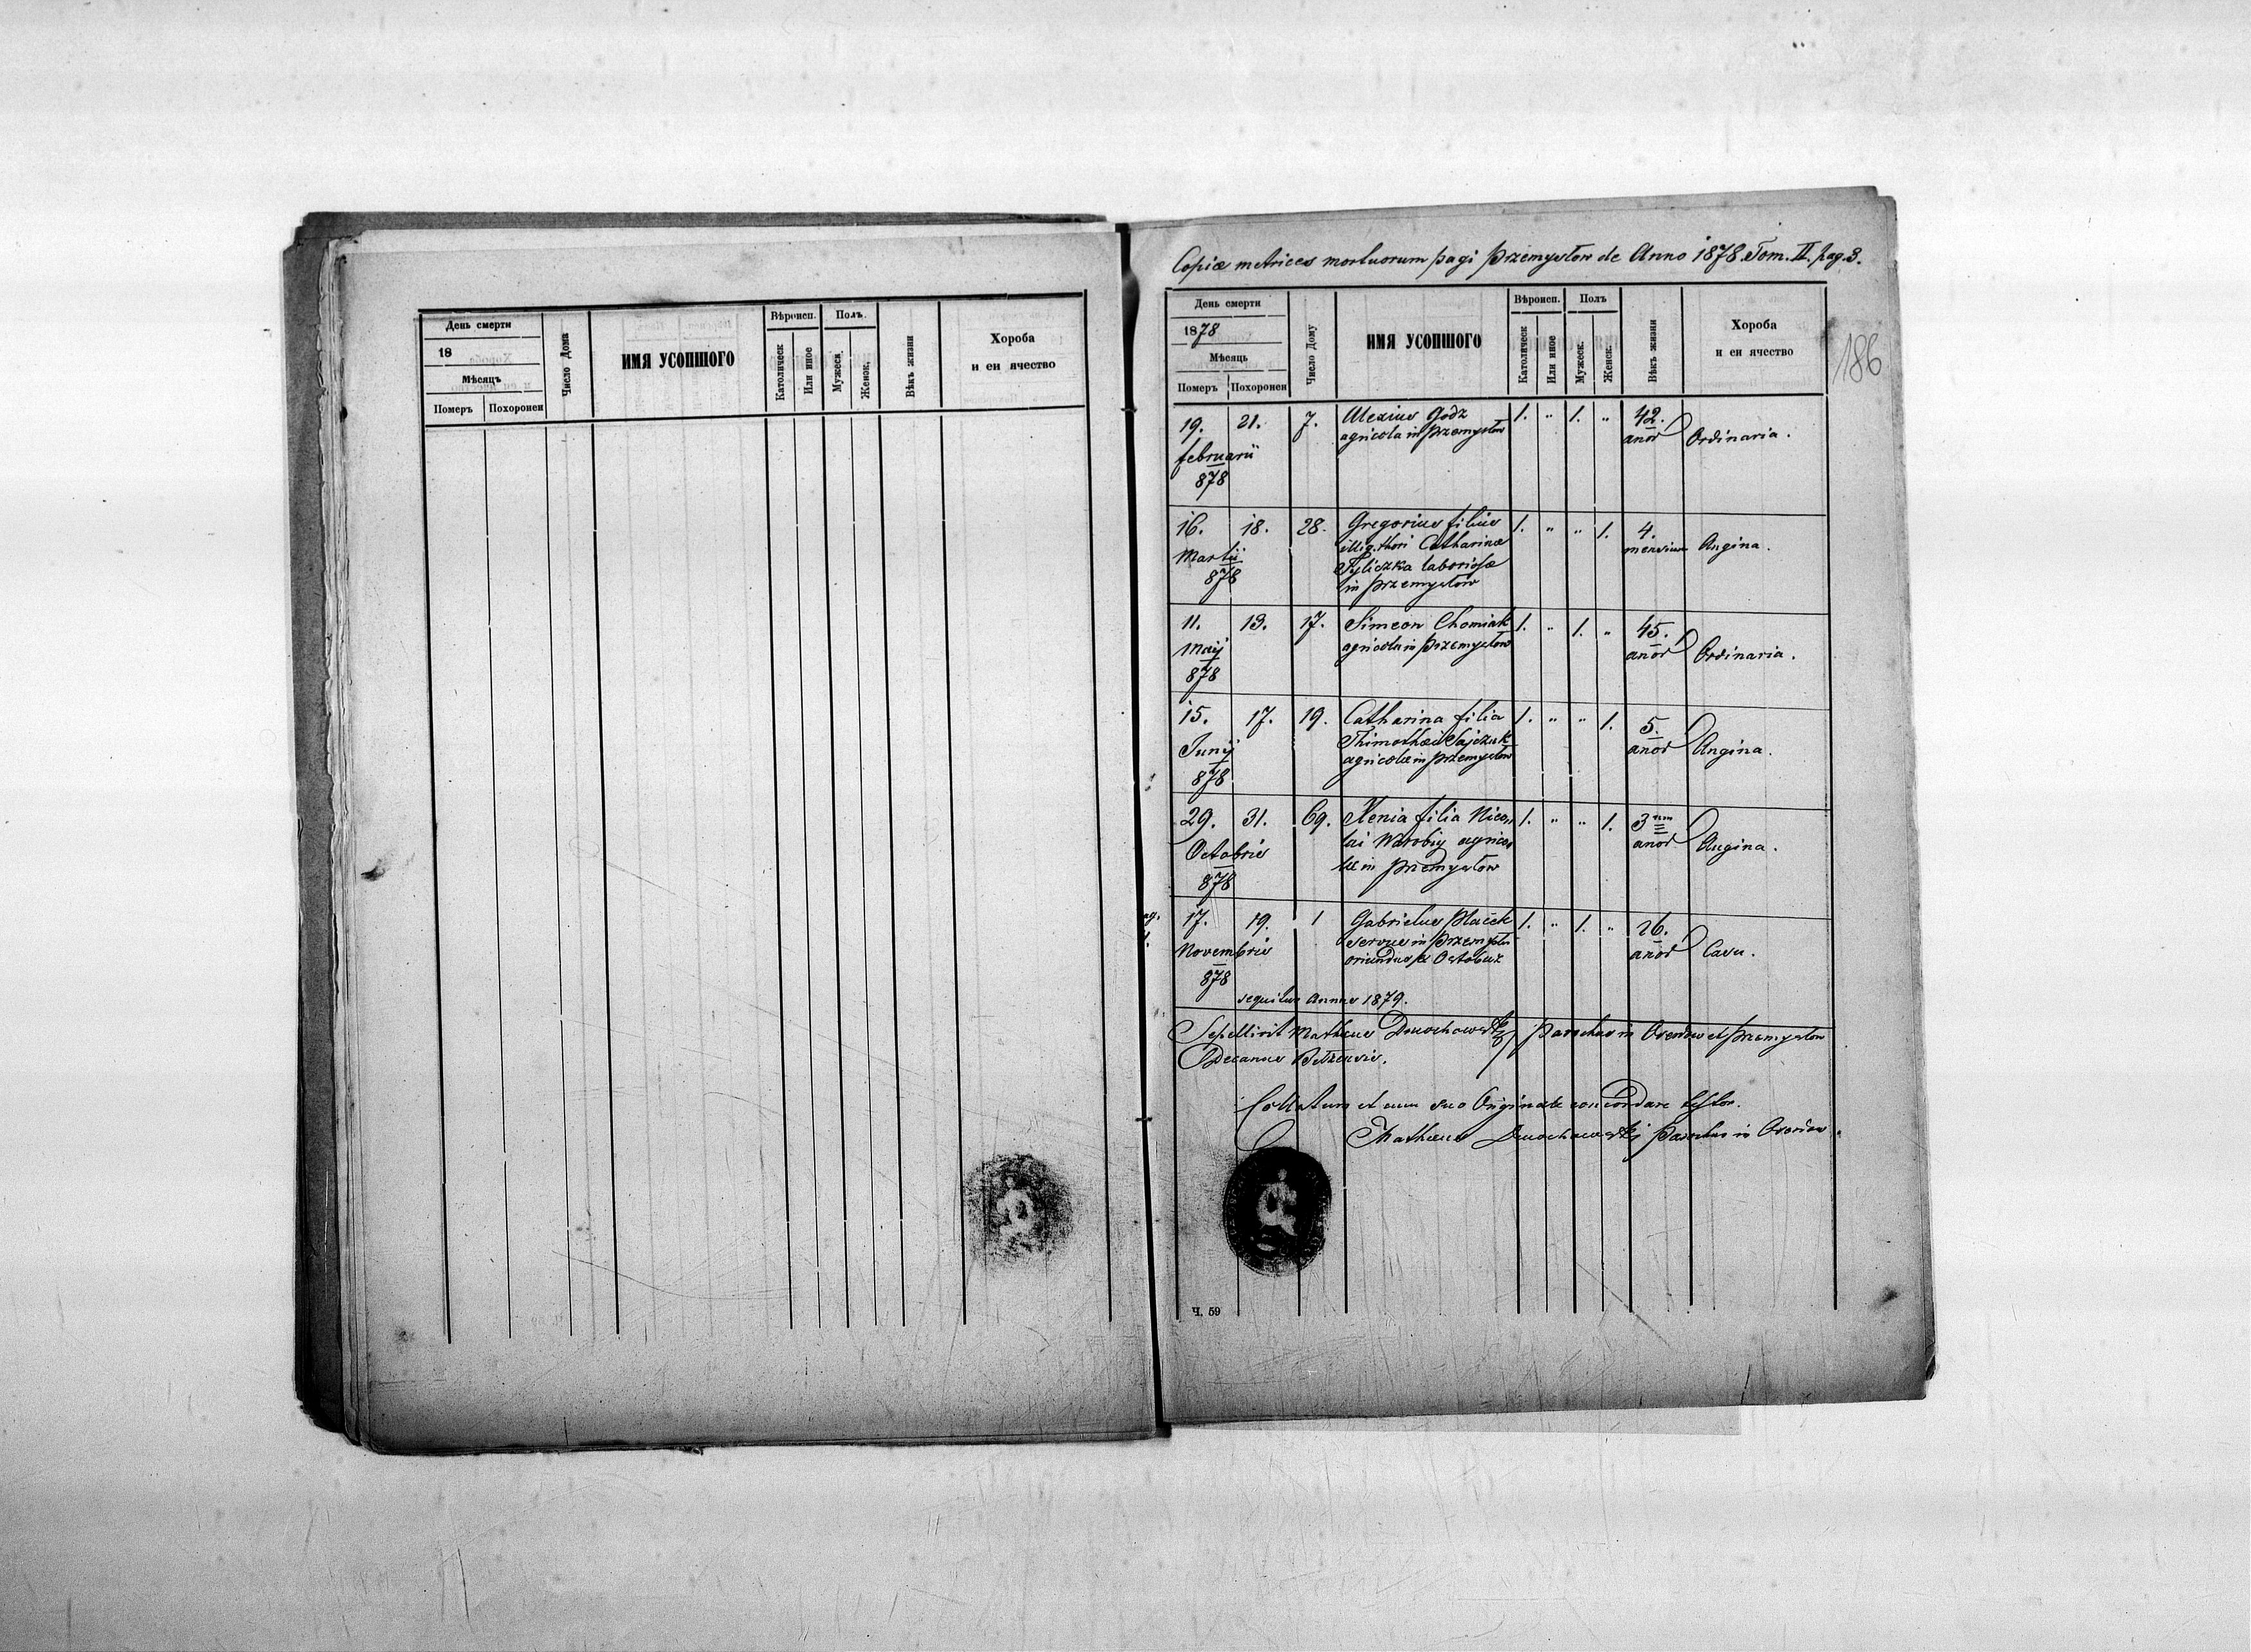 День смерти
18
Мѣсяцъ
Померъ Похоронен
Число Дома
ИМЯ УСОПШОГО
Вѣроисп.
Католическ
Или иное
Полъ.
Мужеск.
Женск.
Вѣкъ жизни
Хороба
и еи ячество
Copiæ metrices mortuorum pagi Przemysłow de Anno 1878. Tom. II. pag. 3.
186
День смерти
1878
Мѣсяць
Померъ Похоронен
Число Дому
ИМЯ УСОПШОГО
Вѣроисп.
Католическ
Или иное
Полъ
Мужеск.
Женск.
Вѣкъ жизни
Хороба
и еи ячество
19. 21. 7. Alexius Godz 1. " 1. " 42.
agricola in Przemysłow anor Ordinaria.
februarii
878
16. 18. 28. Gregorius filius 1. " " 1. 4.
illig. thori Catharinæ mensium Angina.
Martii Tyliczka laboriosæ
878 in Przemysłow
11. 13. 17. Simeon Chomiak 1. " 1. " 45.
Maij agricola in Przemysłow anor Ordinaria.
878
15. 17. 19. Catharina filia 1. " " 1. 5.
Junij Thimothæi Sajczuk anor Angina.
878 agricolæ in Przemysłow
29. 31. 69. Xenia filia Nico„ 1. " " 1. 3
Octobris lai Worobij agrico„ anor Angina.
878 læ in Przemysłow
17. 19. 1 Gabrielus 1. " 1. " 26.
Novembris servus in Przemysłow anor Casu.
878 oriundus
sequitur Annus 1879.
Sepellivit Matheus Parochus in Oserdow et Przemysłow
Decanus Bełzensis.
Collatum et cum suo Originale concordare testor.
Mathæus Parochus in Oserdow.
Ч. 59